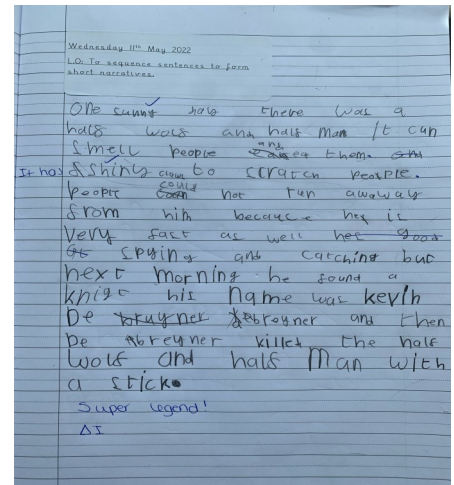 Wednesday 11th May 2022
L.O: To sequence sentences to form
short narratives.
One sunny there was a
half wolf and half man It can
smell people and eat them.
It has shiny claws to scratch people.
people could not run awaway
from him because hes is
Very fast as well hes good
spying and catching but
next morning he found a
knigt his name was kevin
De breyner and then
De breyner killed the half
wolf and half man with
a stick.
Super legend!
ΔI